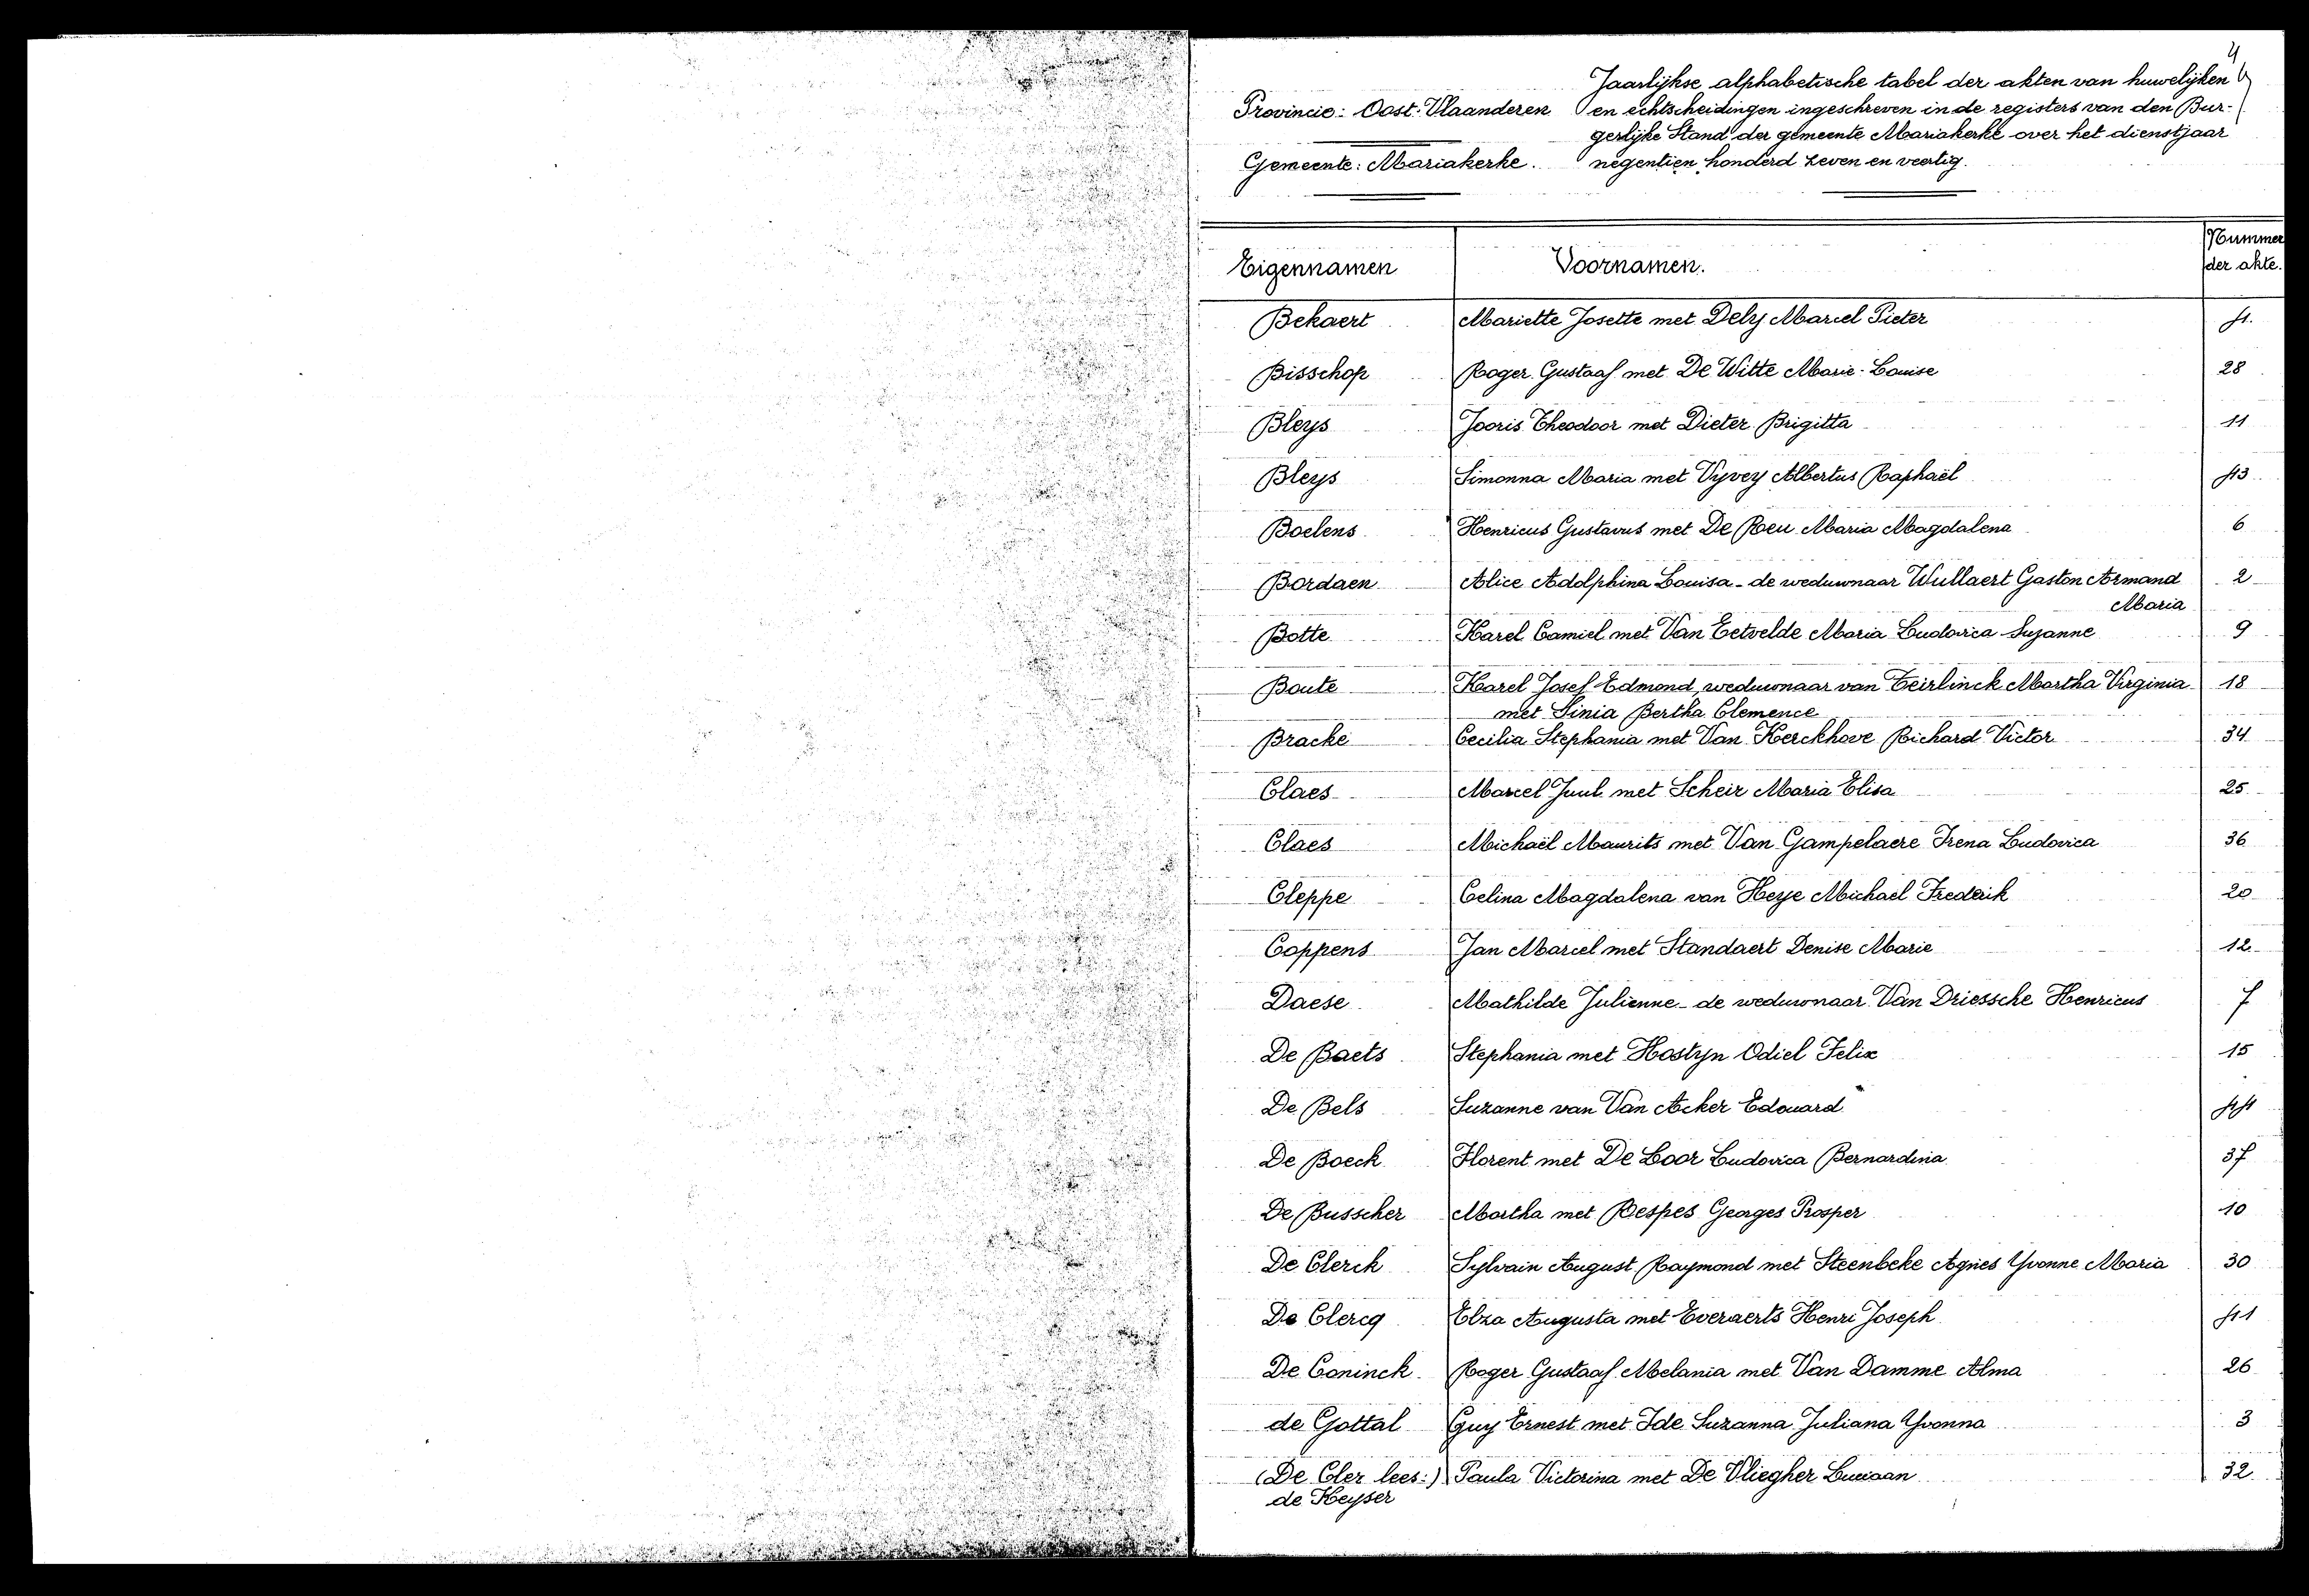 4
Jaarlijkse alphabetische tabel der akten van huwelijken
Provincie: Oost-Vlaanderen en echtscheidingen ingeschreven in de registers van den Bur-
gerlijke Stand der gemeente Mariakerke over het dienstjaar
Gemeente: Mariakerke. negentien honderd zeven en veertig.
Eigennamen Voornamen. Nummer der akte.
Bekaert Mariette Josette met Dely Marcel Pieter 4.
Bisschop Roger Gustaaf met De Witte Marie-Louise 28
Bleys Jooris Theodoor met Dieter Brigitta 11
Bleys Simonna Maria met Vyvey Albertus Raphaël 43
Boelens Henricus Gustavus met De Reu Maria Magdalena 6
Bordaen Alice Adolphina Louisa - de weduwnaar Wullaert Gaston Armand 2
Maria
Botte Karel Camiel met Van Eetvelde Maria Ludovica Suzanne 9
Boute Karel Josef Edmond, weduwnaar van Teirlinck Martha Virginia 18
met Sinia Bertha Clemence
Bracke Cecilia Stephania met Van Kerckhove Richard Victor 34
Claes Marcel Juul met Scheir Maria Elisa 25
Claes Michaël Maurits met Van Gampelaere Irena Ludovica 36
Cleppe Celina Magdalena van Heye Michael Frederik 20
Coppens Jan Marcel met Standaert Denise Marie 12
Daese Mathilde Julienne - de weduwnaar Van Driessche Henricus 7
De Baets Stephania met Hostyn Odiel Felix 15
De Bels Suzanne van Van Acker Edouard 44
De Boeck Florent met De Loor Ludovica Bernardina 37
De Busscher Martha met Respes Georges Prosper 10
De Clerck Sylvain August Raymond met Steenbeke Agnes Yvonne Maria 30
De Clercq Elza Augusta met Everaerts Henri Joseph 41
De Coninck Roger Gustaaf Melania met Van Damme Alma 26
de Gottal Guy Ernest met Ide Suzanna Juliana Yvonna 3
(De Cler lees:) Paula Victorina met De Vliegher Luciaan 32
de Keyser